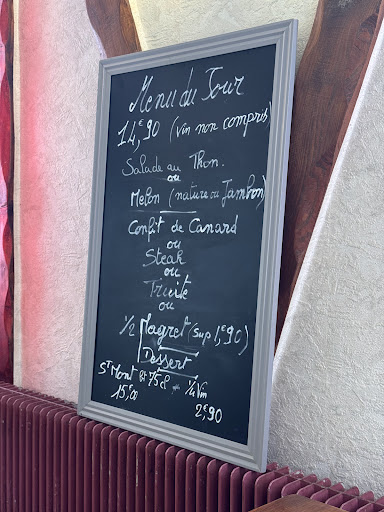 Menu du Jour
14,€90 (vin non compris)
Salade au Thon.
ou
Melon (nature ou Jambon)
Confit de Canard
ou
Steak
ou
Truite
ou
1/2 Magret (sup 1,€90)
Dessert
St Mont 75cl 1/4 Vin
15,00 2,€90